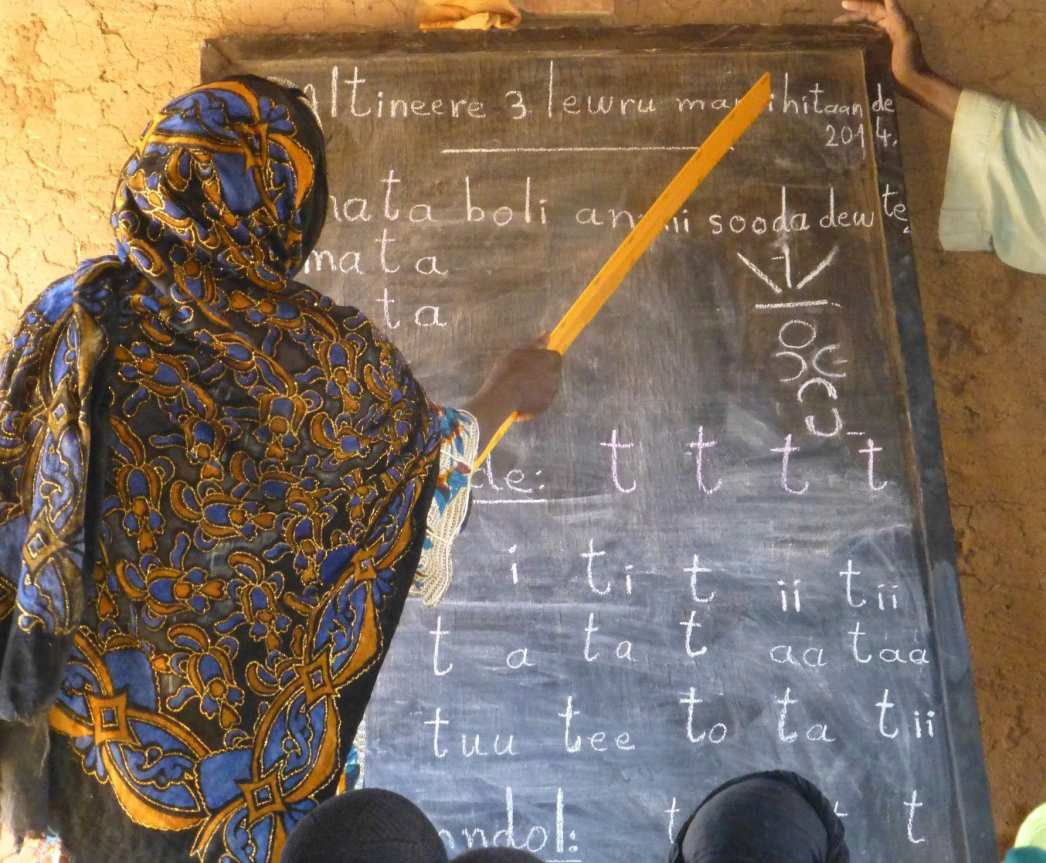 Altineere 3 lewru hitaande
2014.
boli sooda dewte
mata
ta
de: t t t t
i ti t ii tii
t a ta t aa taa
tuu tee to ta tii
ndol: t t